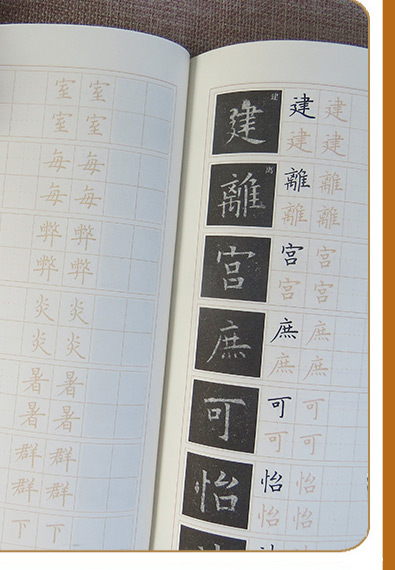 室 室
室 室
每 每
每 每
弊 弊
弊 弊
炎 炎
炎 炎
暑 暑
暑 暑
群 群
群 群
下 下
建 建 建 建
建 建
離 离 離 離
離 離
宫 宫 宫
宫 宫
庶 庶 庶
庶 庶
可 可 可
可 可
怡 怡 怡
怡 怡